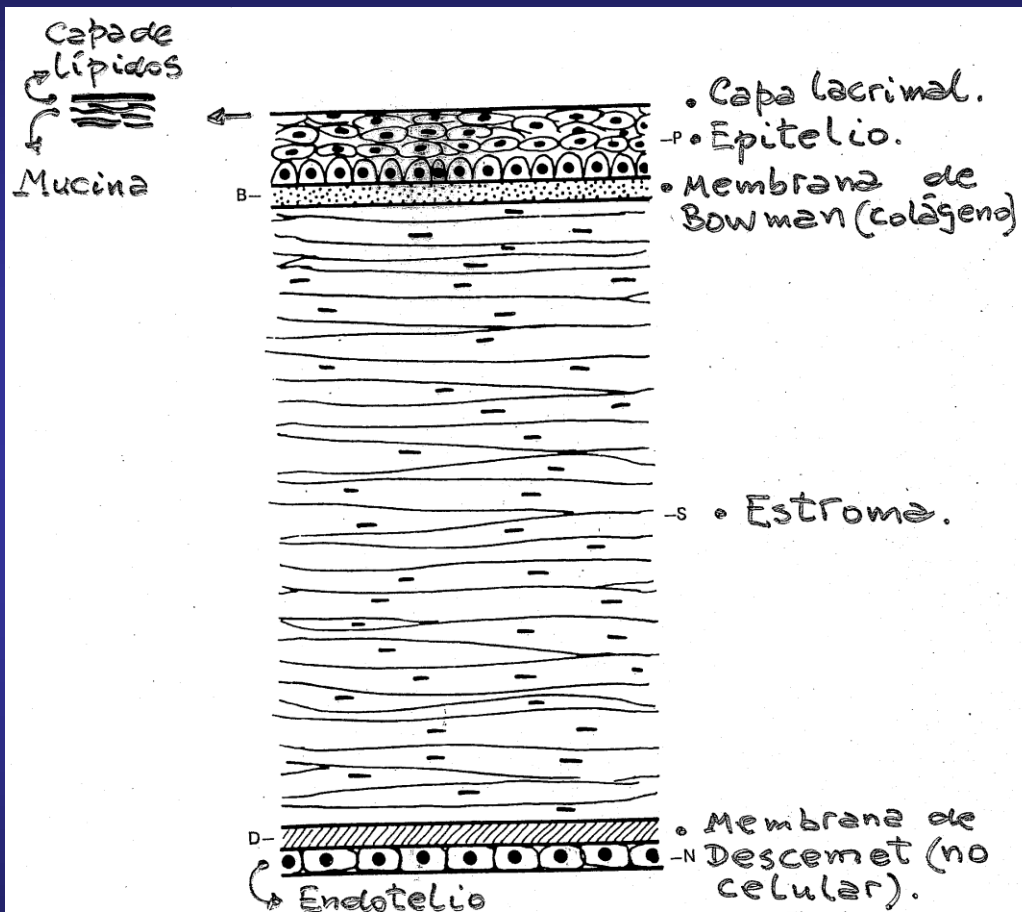 Capa de
lípidos
Mucina
• Capa lacrimal.
–P • Epitelio.
B–
• Membrana de
Bowman (colágeno)
–S • Estroma.
D–
• Membrana de
–N Descemet (no
celular).
Endotelio